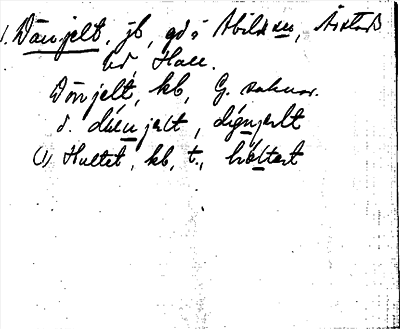 1. Dänjelt, jb, gd i Abild sn, Årstads
hd, Hall.
Dönjelt, kb, G. saknar.
d. diu̱njelt, diö̱njelt
(1) Hultet, kb, t.,